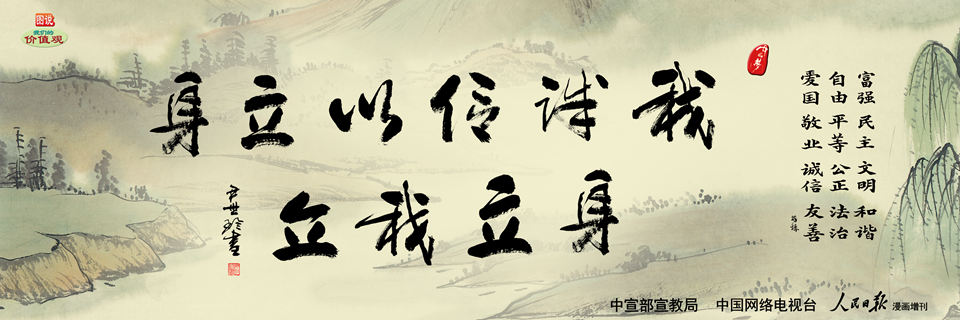 图说
我们的
价值观
中国梦
富强 民主 文明 和谐
自由 平等 公正 法治
爱国 敬业 诚信 友善
我诚信以立身
身立我立
中宣部宣教局 中国网络电视台 人民日报 漫画增刊